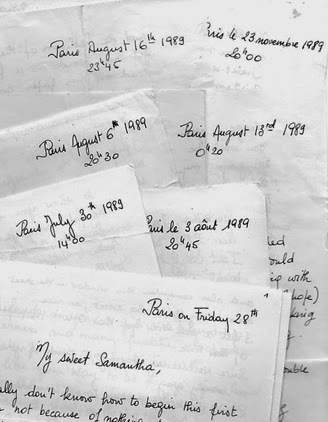 Paris August 16th 1989
23h45
Paris le 23 novembre 1989
20h00
Paris August 6th 1989
20h30
Paris August 13rd 1989
0h20
Paris July 30th 1989
14h00
Paris le 3 août 1989
20h45
ould
ing with
hope)
king
ouble
Paris on Friday 28th
My sweet Samantha,
ally don't know how to begin this first
not because of nothing to